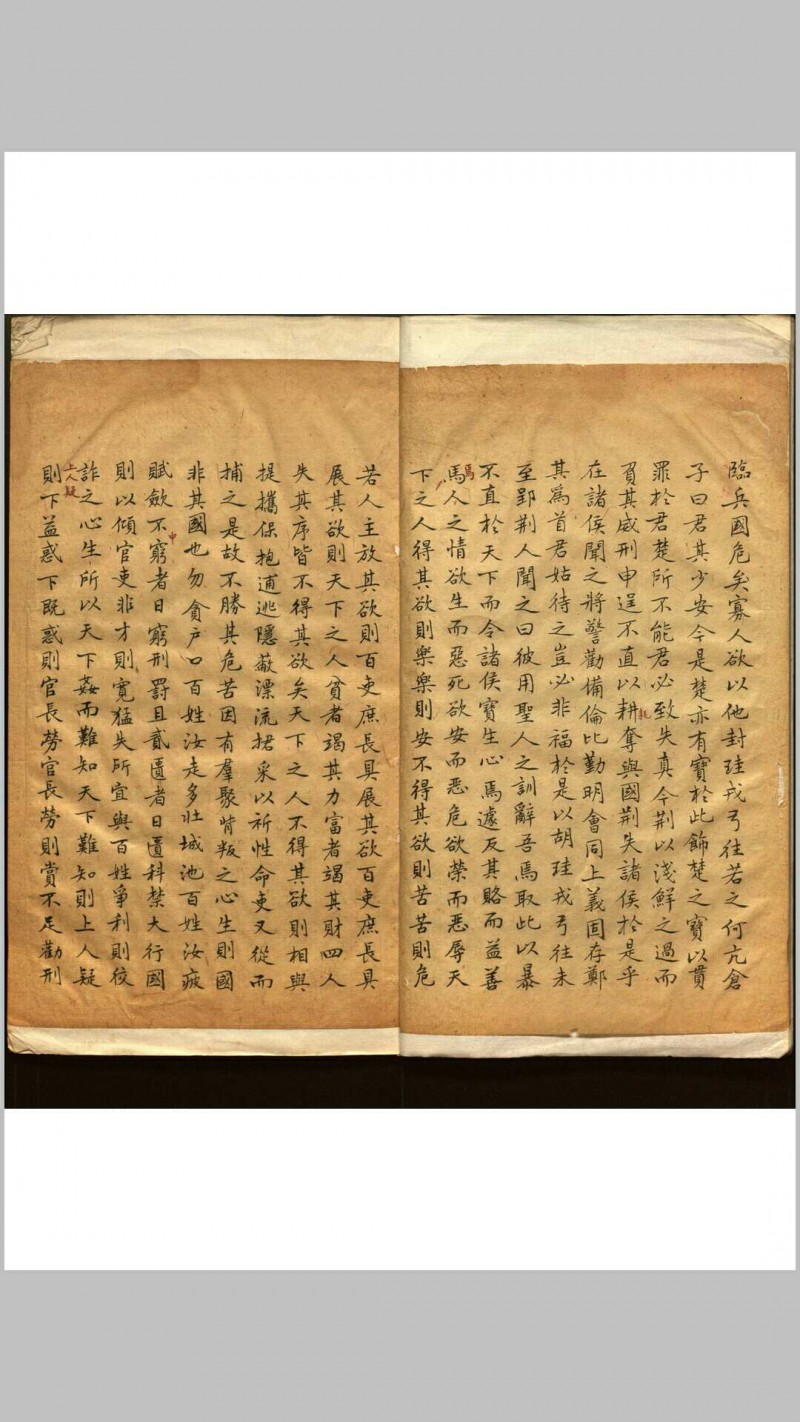 臨兵國危矣寡人欲以他封珪戎弓往若之何亢倉
子曰君其少安今是楚亦有寶於此飾楚之寶以貫
罪於君楚所不能君必致失真今荆以淺鮮之過而
質其威刑申逞不直以耕奪與國荆失諸侯於是乎
在諸侯聞之將警勸備倫比勤明會同上義固存鄭
其爲首君姑待之豈必非福於是以胡珪戎弓往未
至郢荆人聞之曰彼用聖人之訓辭吾焉取此以暴
不直於天下而令諸侯寶生心焉遽反其賂而益善
馬人之情欲生而惡死欲安而惡危欲榮而惡辱天
下之人得其欲則樂樂則安不得其欲則苦苦則危
若人主放其欲則百吏庶長具展其欲百吏庶長具
展其欲則天下之人貧者竭其力富者竭其財四人
失其序皆不得其欲矣天下之人不得其欲則相與
提攜保抱逋逃隱蔽漂流捃采以祈性命吏又從而
捕之是故不勝其危苦因有羣聚背叛之心生則國
非其國也勿貪戶口百姓汝走多壯城池百姓汝疲
賦斂不窮者日窮刑罰且貳匱者日匱科禁大行國
則以傾官吏非才則寬猛失所宜與百姓爭利則狡
詐之心生所以天下姦而難知天下難知則上人疑
上人疑
則下益惑下既惑則官長勞官長勞則賞不足勸刑